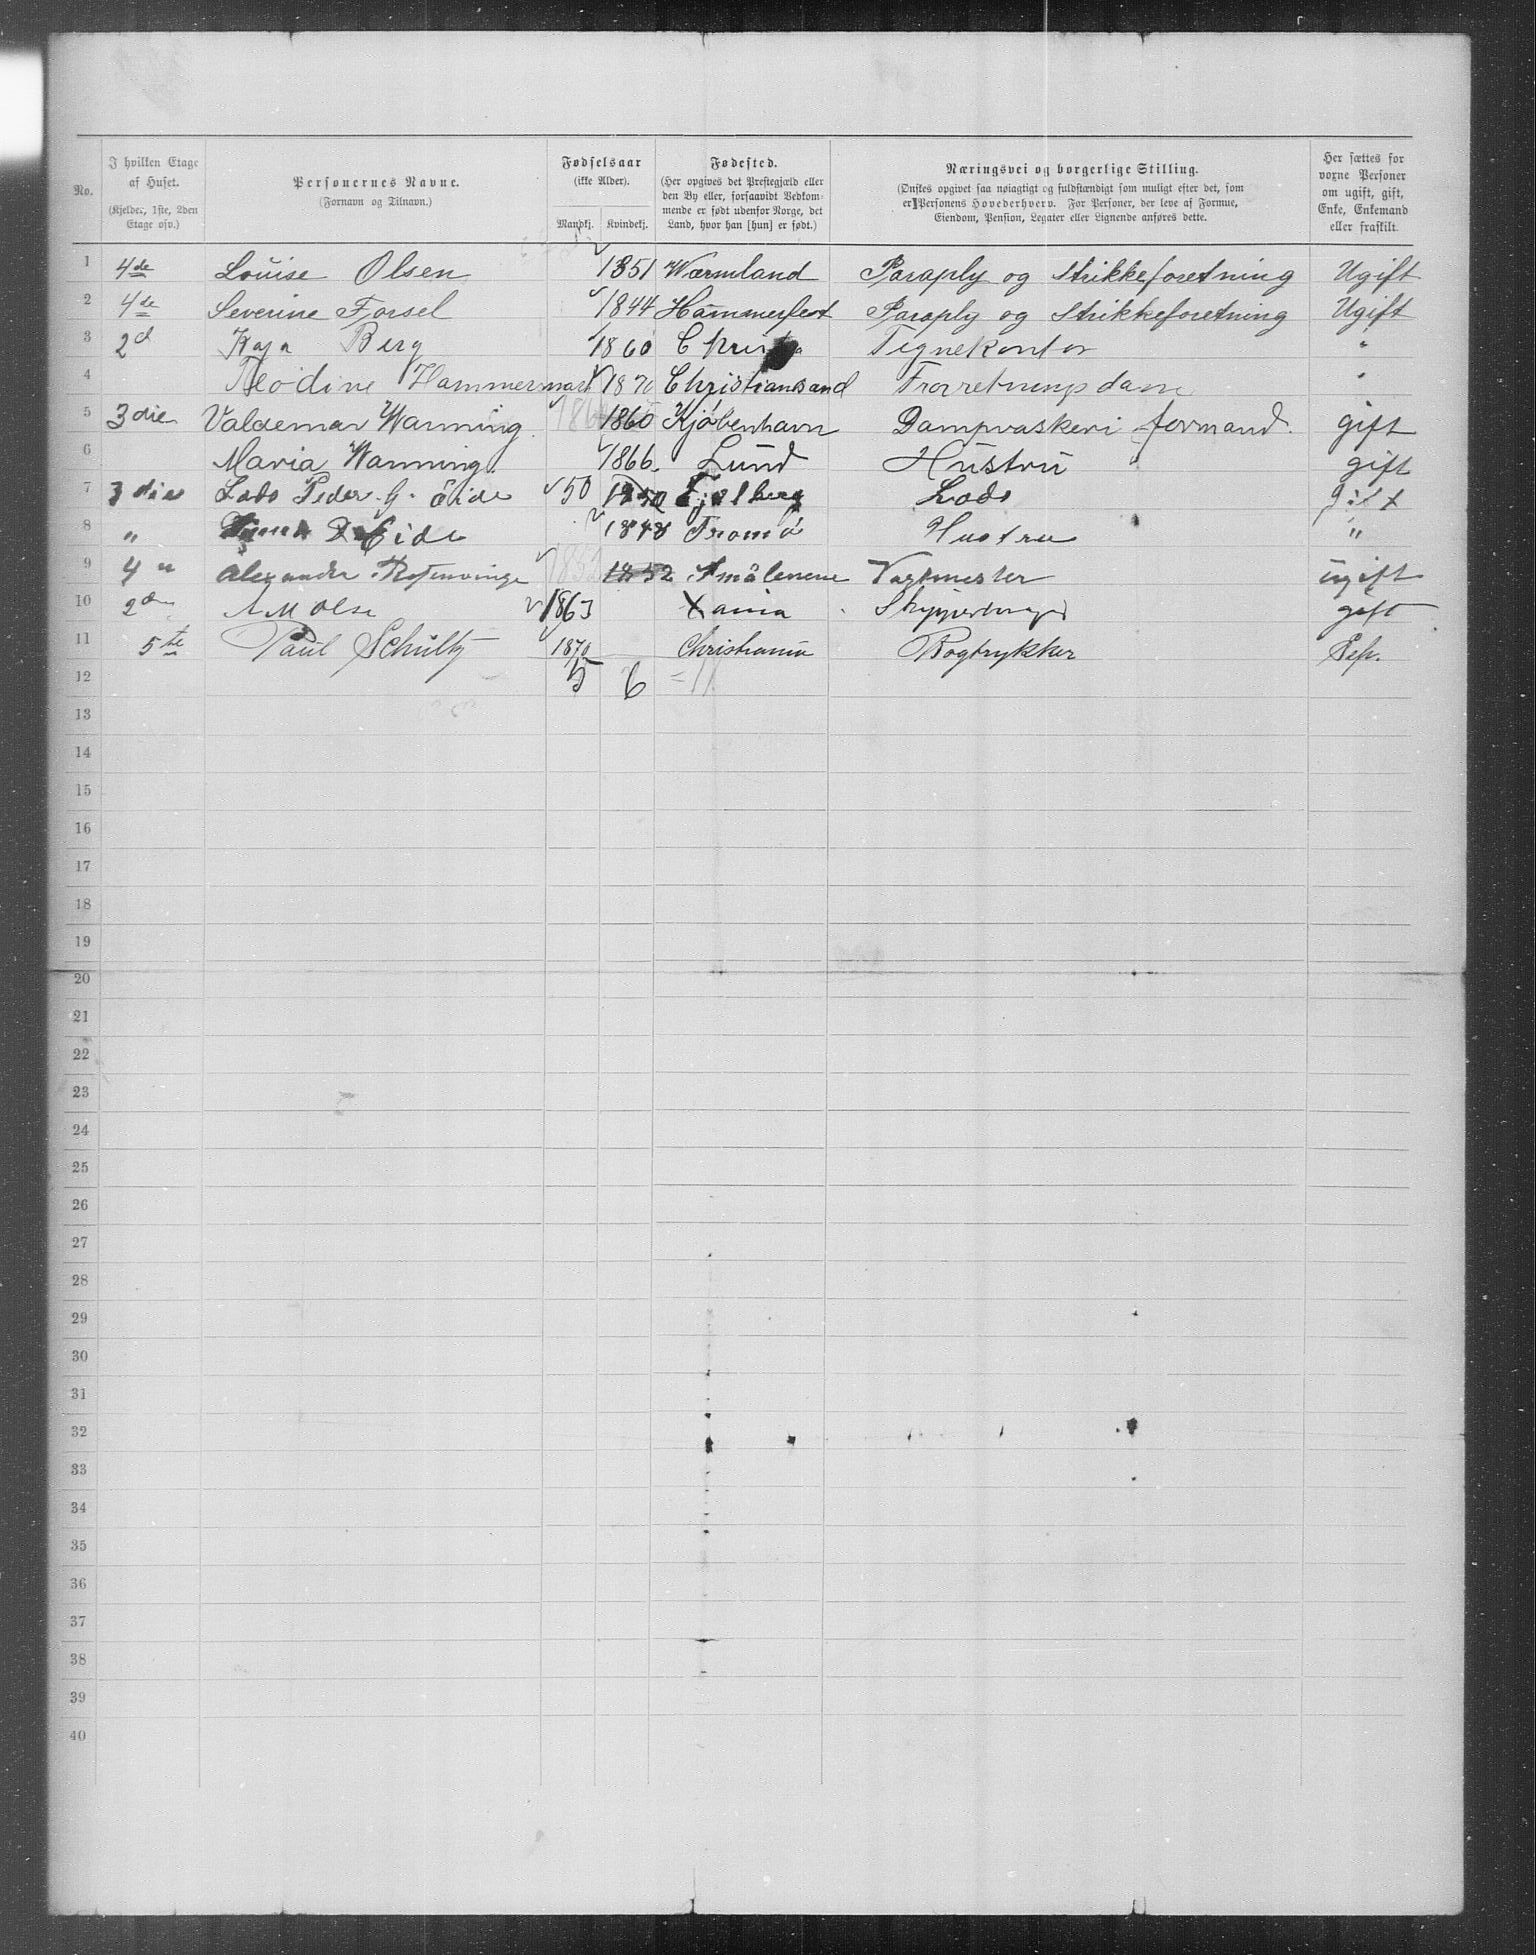 No.
I hvilken Etage af Huset. (Kjelder, 1ste, 2den Etage osv.)
Personernes Navne. (Fornavn og Tilnavn.)
Fødselsaar (ikke Alder). Mandkj. Kvindekj.
Fødested. (Her opgives det Prestegjæld eller den By eller, forsaavidt Vedkommende er født udenfor Norge, det Land, hvor han [hun] er født.)
Næringsvei og borgerlige Stilling. (Ønskes opgivet saa nøiagtigt og fuldstændigt som muligt efter det, som er Personens Hovederhverv. For Personer, der leve af Formue, Eiendom, Pension, Legater eller Lignende anføres dette.
Her sættes for voxne Personer om ugift, gift, Enke, Enkemand eller fraskilt.
1 4de Louise Olsen 1851 Wærmland Paraply og Strikkeforetning Ugift
2 4de Severine Forsel 1844 Hammerfest Paraply og Strikkeforetning Ugift
3 2d Kaja Berg 1860 Tegnekontor "
4 Teodine Hammersmark 1870 Christiansand Frorretnings dame "
5 3die Valdemar Warming 1860 Kjøbenhavn Dampvaskeri formand. gift
6 Maria Warming. 1866. Lund Hustru gift
7 3die Lods Peder G. Eide 50 1850 Fjelberg Lods gift
8 " Eide 1848 Tromsø Hustru "
9 4 " Alexander Rosenvinge 1852 1852 Smålenene Vagtmester ugift
10 2d A M Olsen 1863 Xania gift
11 5te Paul Schultz 1870 Christiania Bogtrykker Sep.
12 5 6 =11
13
14
15
16
17
18
19
20
21
22
23
24
25
26
27
28
29
30
31
32
33
34
35
36
37
38
39
40